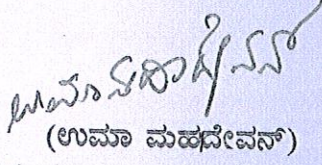 ಉಮಾ ಮಹದೇವನ್
(ಉಮಾ ಮಹದೇವನ್)